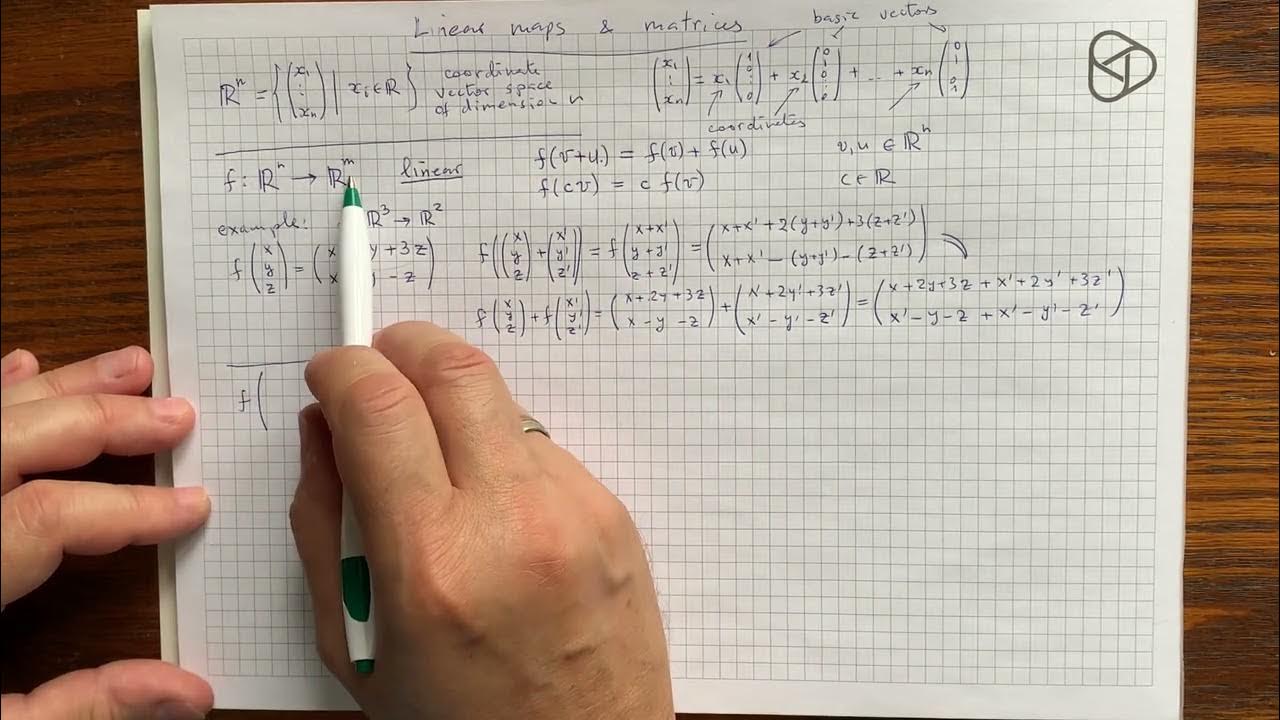 Linear maps & matrices
basic vectors
ℝⁿ = { (x₁ ⋮ xₙ) | xᵢ ∈ ℝ } coordinate vector space of dimension n
(x₁ ⋮ xₙ) = x₁ (1 0 ⋮ 0) + x₂ (0 1 0 ⋮ 0) + ... + xₙ (0 ⋮ 0 1)
coordinates
f: ℝⁿ → ℝᵐ linear
f(v+u) = f(v) + f(u) v, u ∈ ℝⁿ
f(cv) = c f(v) c ∈ ℝ
example: ℝ³ → ℝ²
f (x y z) = (x y + 3z x - z)
f ((x y z) + (x' y' z')) = f (x+x' y+y' z+z') = (x+x' + 2(y+y') + 3(z+z') x+x' - (y+y') - (z+z'))
f (x y z) + f (x' y' z') = (x+2y+3z x-y-z) + (x'+2y'+3z' x'-y'-z') = (x+2y+3z + x'+2y'+3z' x'-y-z + x'-y'-z')
f (